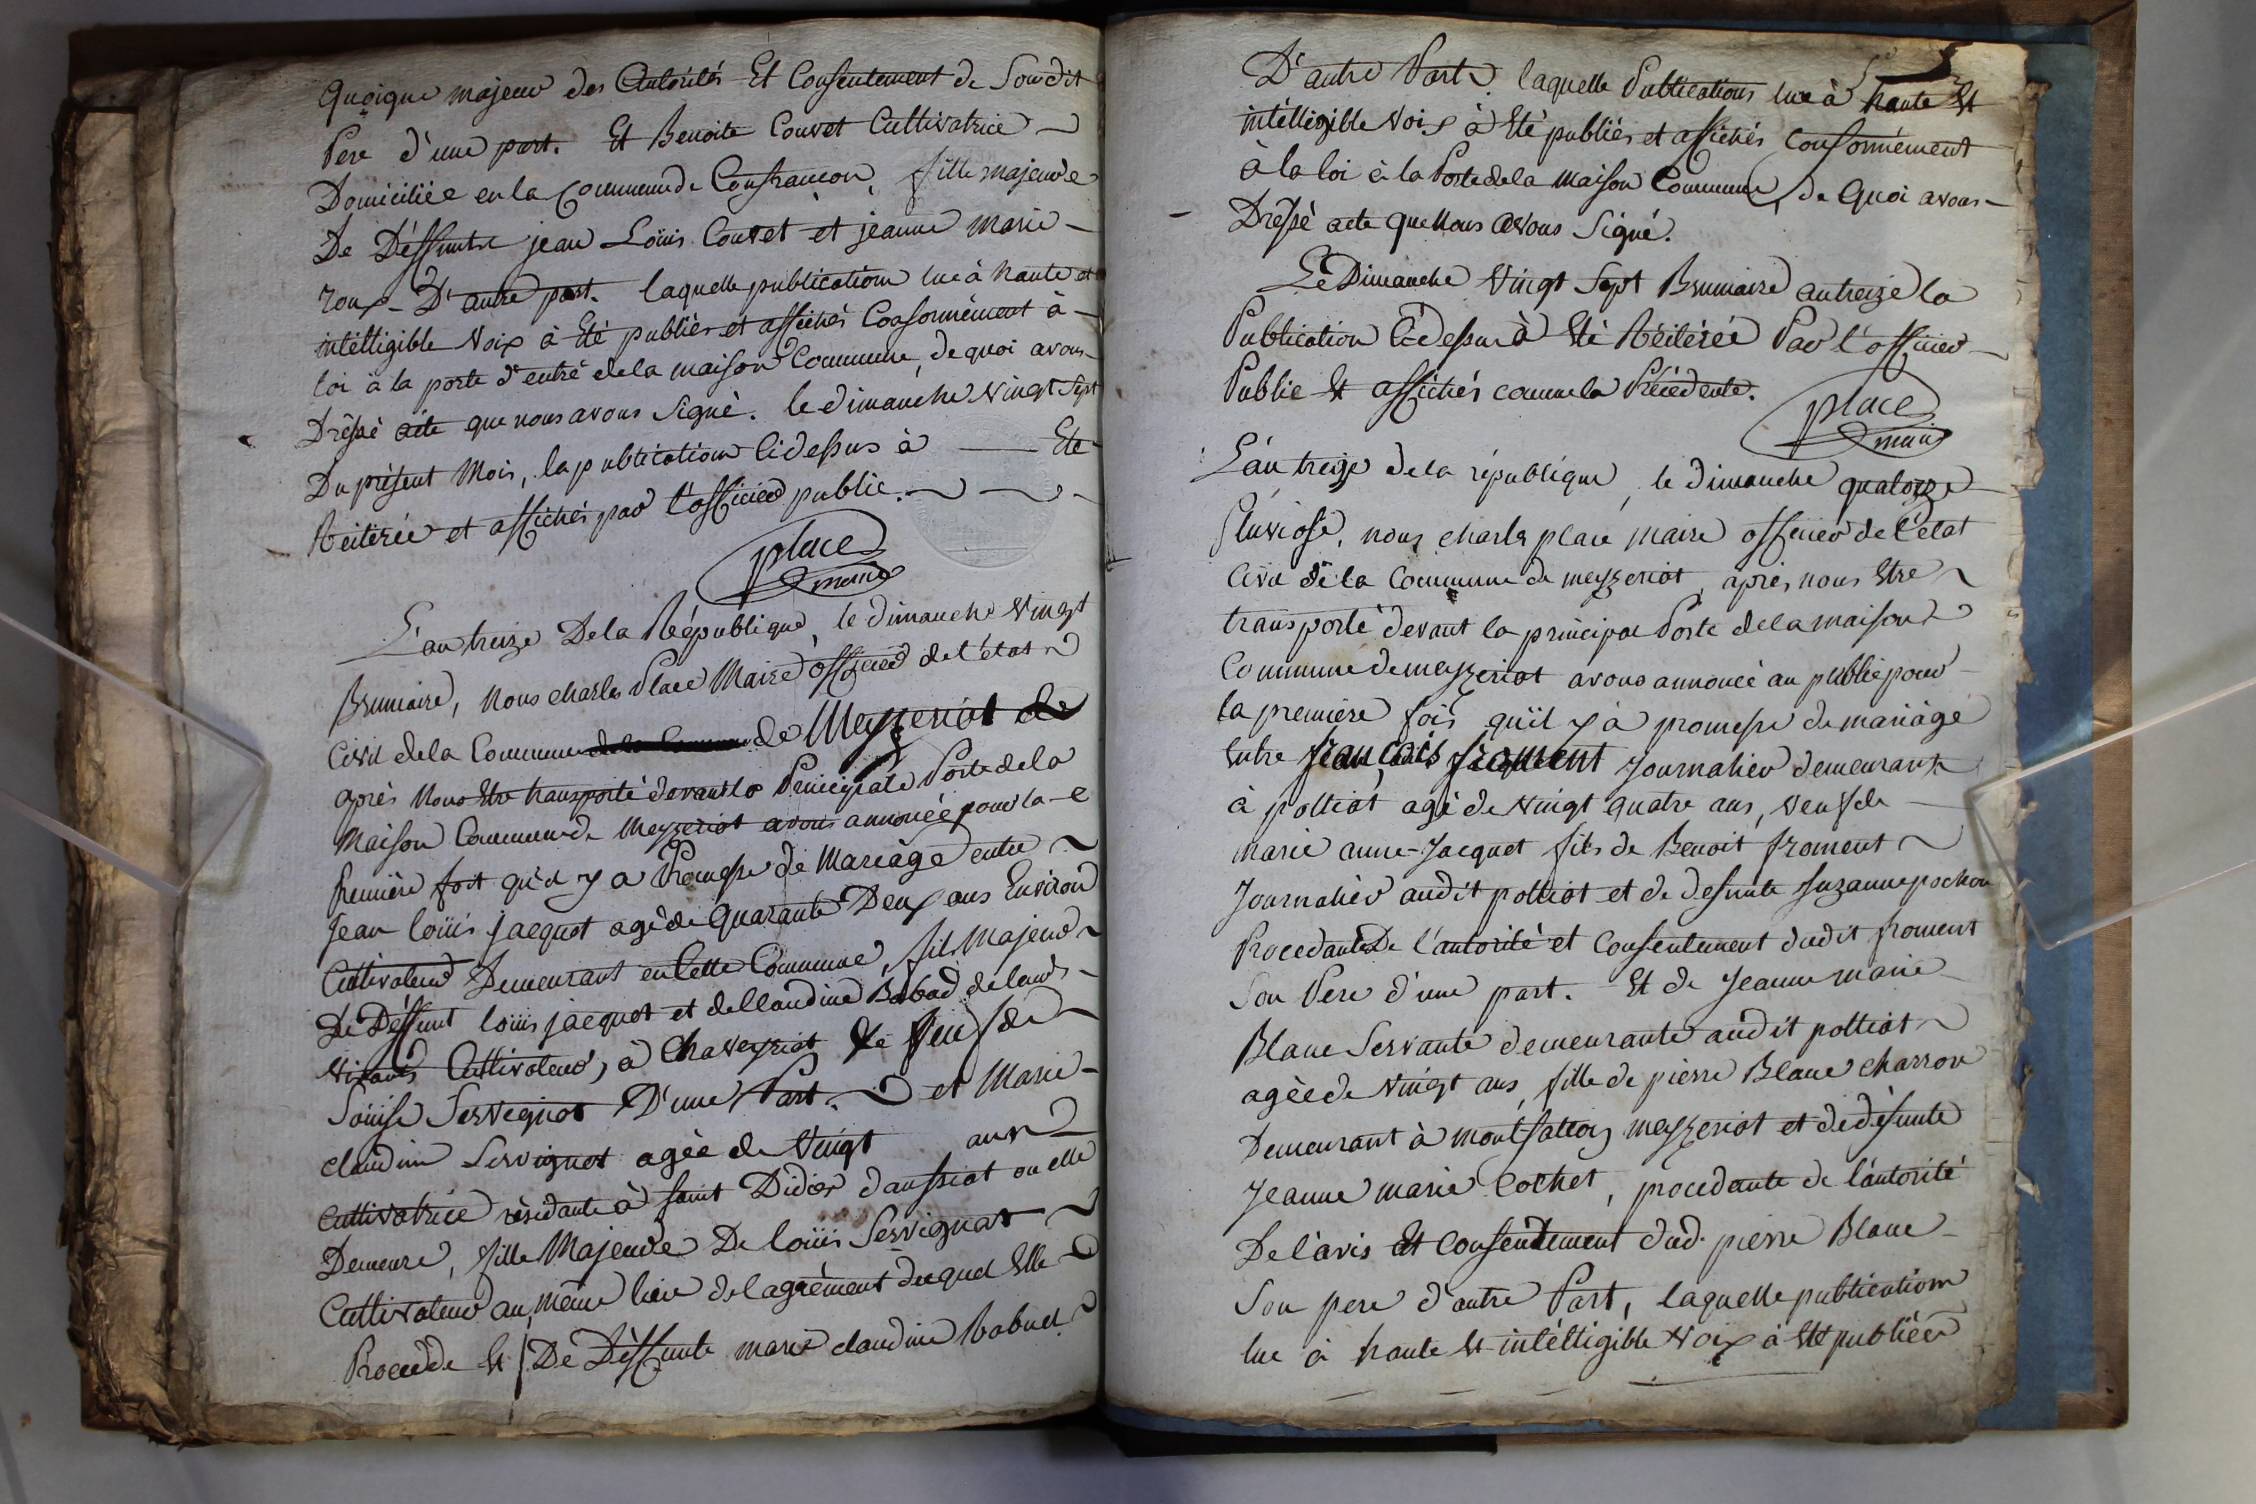 quoique majeur des autorités Et Consentement de Sondit
Pere d'une part. Et Benoite Couvet Cultivatrice
Domiciliée en la Commune de Confrancon, fille majeure
De Déffunts jean Loüis Couvet et jeanne marie
roux D'autre part. laquelle publication lue à haute et
intélligible Voix à Eté publiés et affichés Conformément à
loi à la porte d'entré de la maison Commune, de quoi avons
Dréssé acte que nous avons Signé. le dimanche Vingt Sept
Du présent Mois, la publication Cidessus à Eté
Réitérée et affichés par l'officier public.
place
maire
L'an treize De la République, le dimanche Vingt
Brumaire, Nous charles Place Maire officier de l'état
Civil de la Commune de Meyzeriat
après Nous Etre transporté devant la Principale Porte de la
Maison Commune de Meyzeriat avons annoncée pour la
Première fois qu'il y a Promesse de Mariage entre
Jean loüis jacquet agé de Quarante Deux ans Environ
Cultivateur Demeurant en Cette Commune, fils Majeur
De Déffunt loüis jacquet et de Claudine Babad de leurs
Vivants Cultivateurs, à Chaveyriat Veuf de
Loüise Servignat D'une Part. et Marie
claudine Servignat agée de Vingt ans
Cultivatrice résidante à saint Didier d'aussiat ou elle
Demeure, fille Majeure De loüis Servignat
Cultivateur au même lieu de l'agrément du quel Elle
Procéde Et De Déffunte marie claudine
D'autre Part. laquelle Publications lue à haute Et
intélligible Voix à Eté publiés et affichés Conformément
à la loi à la Porte de la maison Commune, de Quoi avons
Dréssé acte que Nous avons Signé.
Le Dimanche Vingt Sept Brumaire an treize la
Publication Cidessus à Eté Réitérée Par l'officier
Public Et affichés comme la Précédente.
place
maire
L'an treize de la république, le dimanche quatorze
Pluviose, nous charles place maire officier de l'état
Civil de la Commune de meyzeriat, après nous Etre
transporté devant la principal Porte de la maison
Commune de meyzeriat avons annoncé au public pour
la première fois qu'il y à promesse de mariage
Entre françois froment Journalier demeurant
à polliat agé de Vingt quatre ans, veuf de
marie anne Jacquet fils de Benoit froment
Journalier audit polliat et de defunte suzanne pochon
Procedante De l'autorité et Consentement dudit froment
Son Pere d'une part. Et de Jeanne marie
Blanc Servante demeurante audit polliat
agée de Vingt ans, fille de pierre Blanc charron
Demeurant à meyzeriat et de défunte
Jeanne marie Cochet, procedante de l'autorité
De l'avis Et Consentement dud. pierre Blanc
Son pere d'autre Part, laquelle publication
lue à haute Et intélligible Voix à Eté publiée